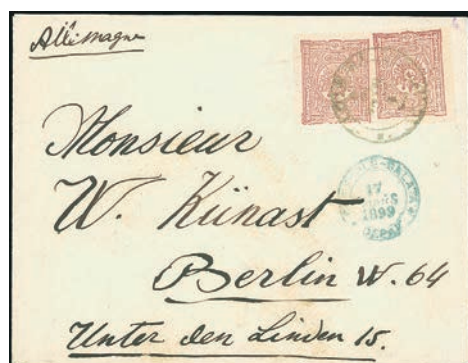 Allemagne
Monsieur
W. Künast
Berlin W. 64
Unter den Linden 15.
17
MARS
1899
DEPART